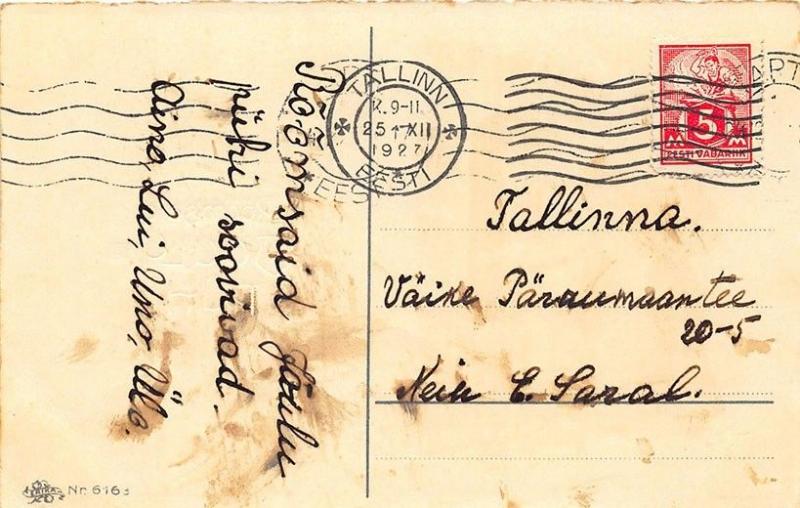 Rõõmsaid Jõulu
pühi soovivad.
Aino, Lui, Uno, Ülo.
TALLINN
K. 9-11
25 XII
1927
EESTI
EESTI
5 M
EESTI VABARIIK
Tallinna.
Väike Pärnumaantee
20-5
Neiu E. Saral.
Nr. 616